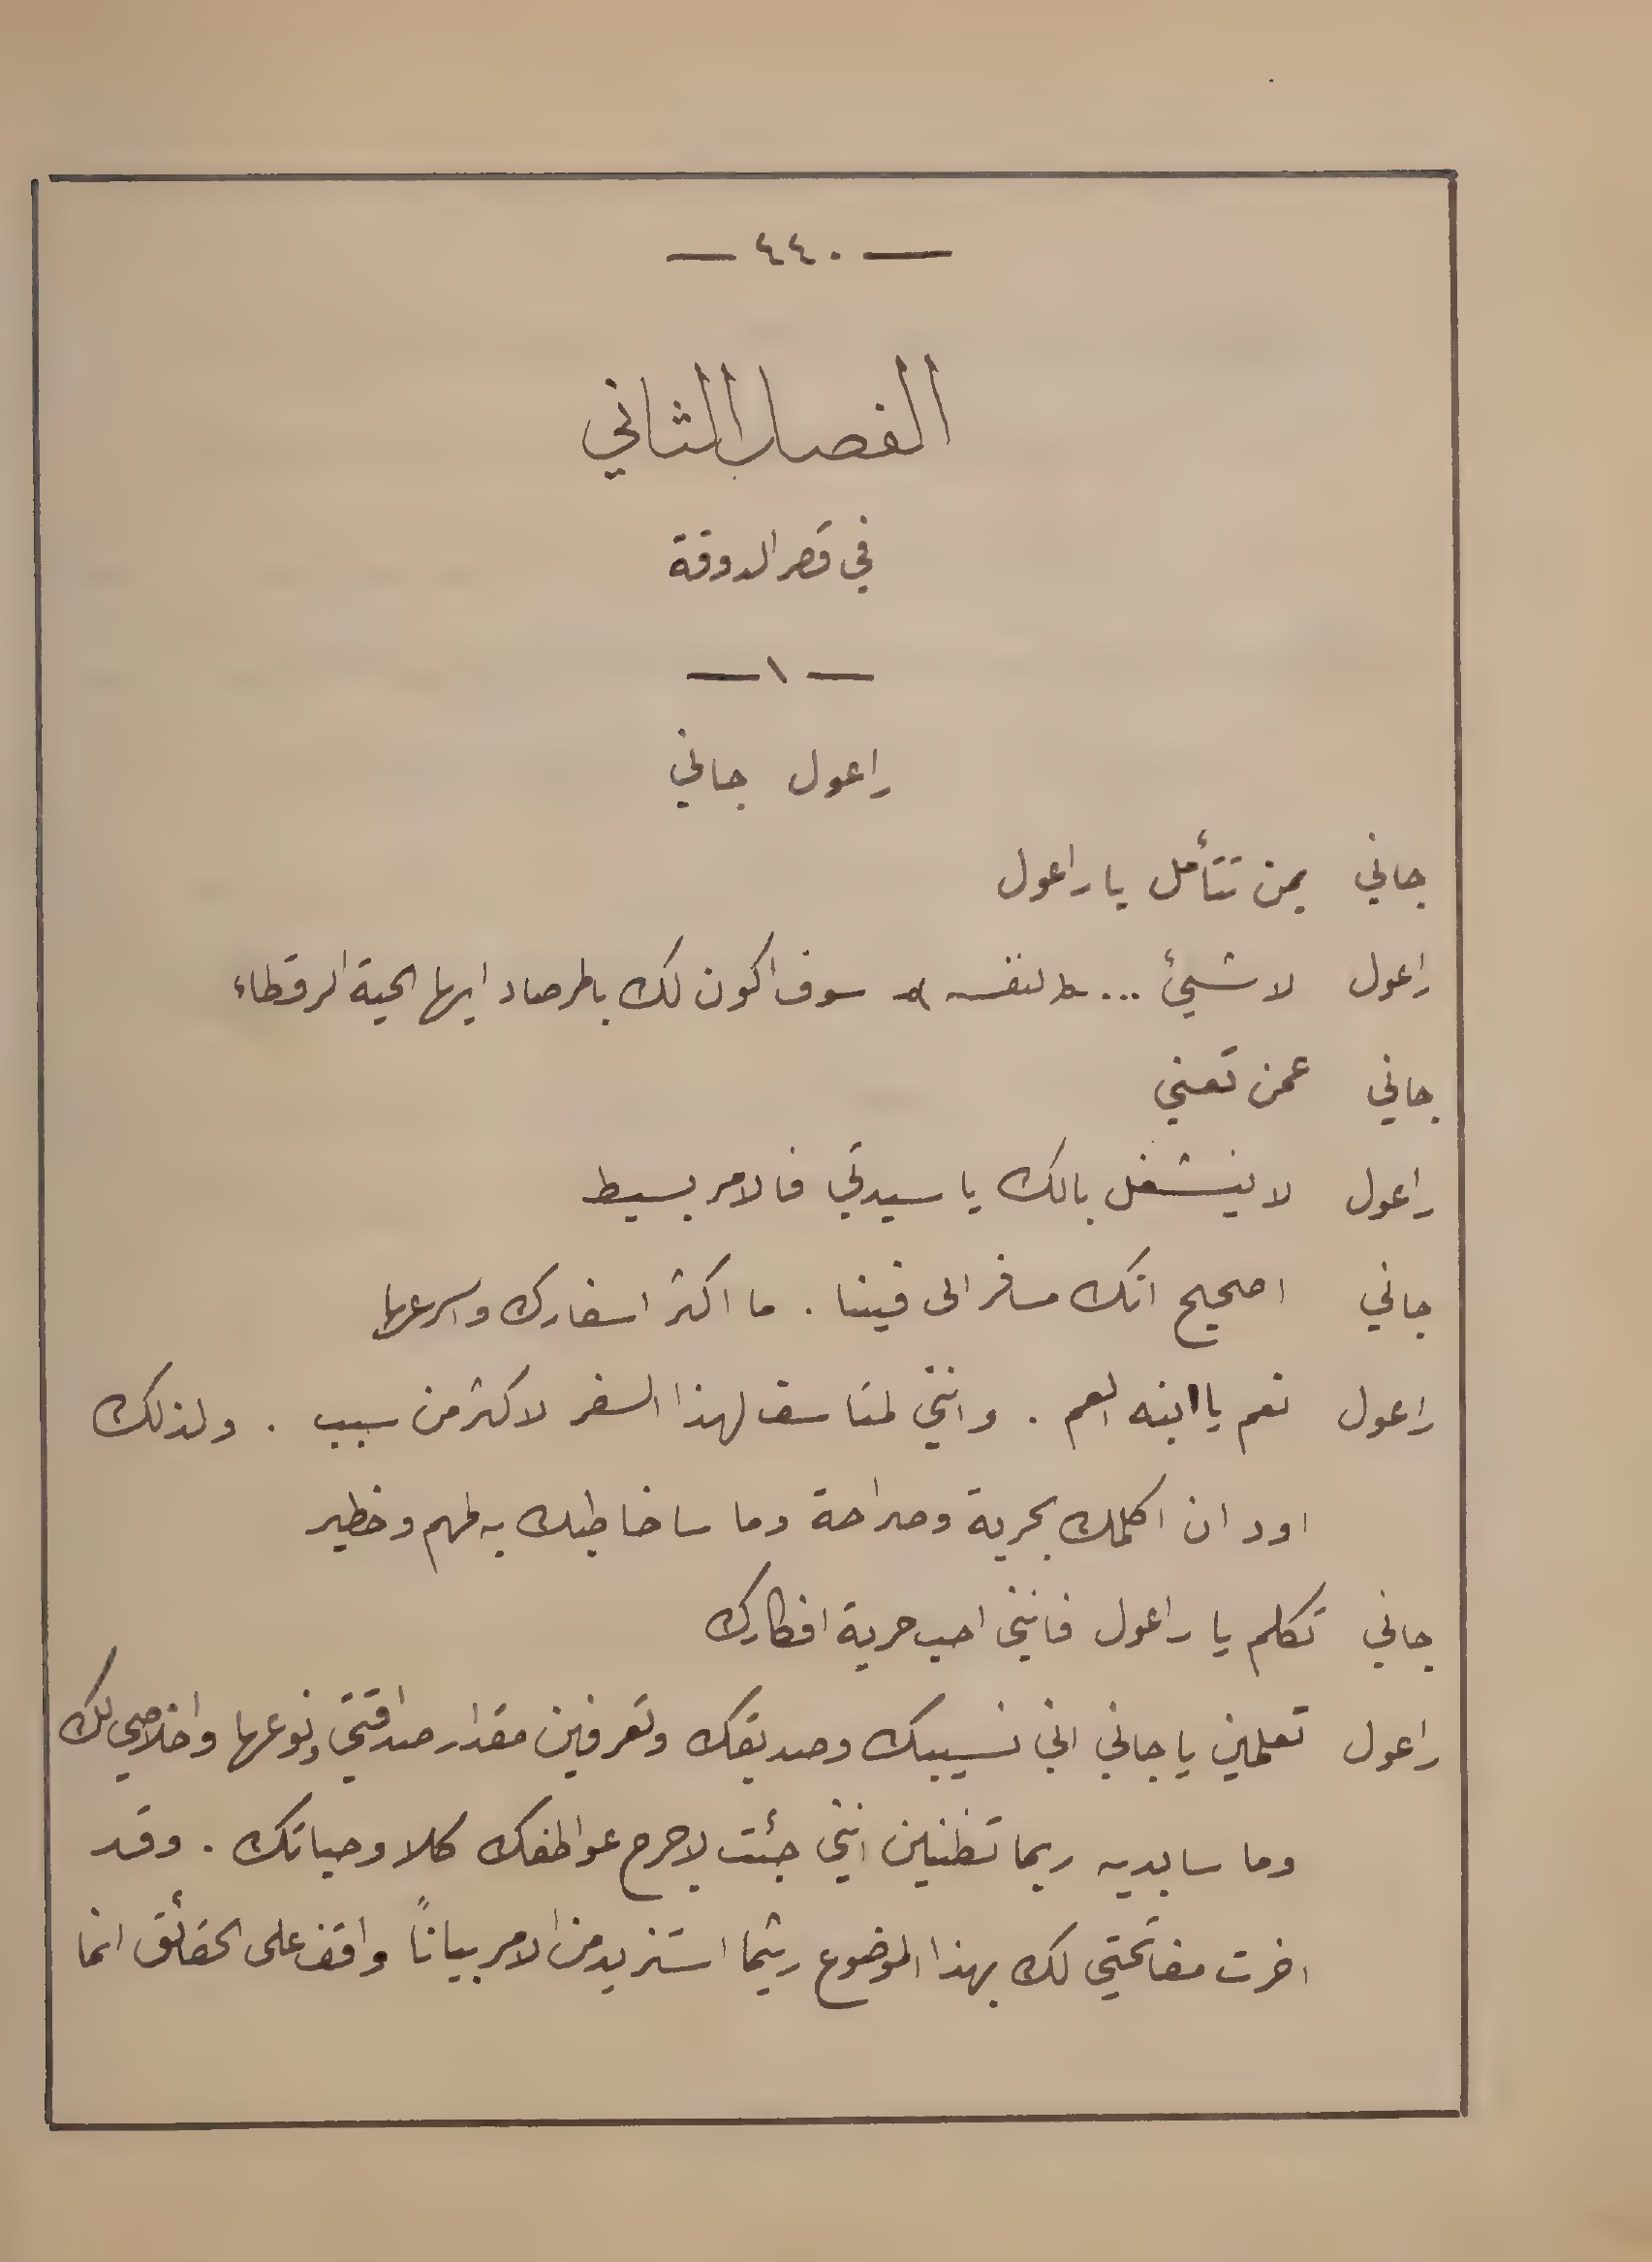 — ٤٤٠ —
الفصل الثاني
في قصر الدوقة
— ١ —
راعول جاني
جاني بمن تتأمل يا راعول
راعول لا شيئ ... « لنفسه » سوف اكون لك بالمرصاد ايها الحية الرقطاء
جاني عمن تعني
راعول لا ينشغل بالك يا سيدتي فالامر بسيط
جاني اصحيح انك مسافر الى فيينا . ما اكثر اسفارك واسرعها
راعول نعم يا ابنه العم . وانني لمتاسف لهذا السفر لاكثر من سبب . ولذلك
اود ان اكلمك بحرية وصراحة وما ساخاطبك به لمهم وخطير
جاني تكلم يا راعول فانني احب حرية افكارك
راعول تعلمين يا جاني اني نسيبك وصديقك وتعرفين مقدار صداقتي ونوعها واخلاصي لك
وما سابديه ربما تظنين انني جئت لاجرح عواطفك كلا وحياتك . وقد
اخرت مفاتحتي لك بهذا الموضوع ريثما استزيد من الامر بياناً واقف على الحقائق انما